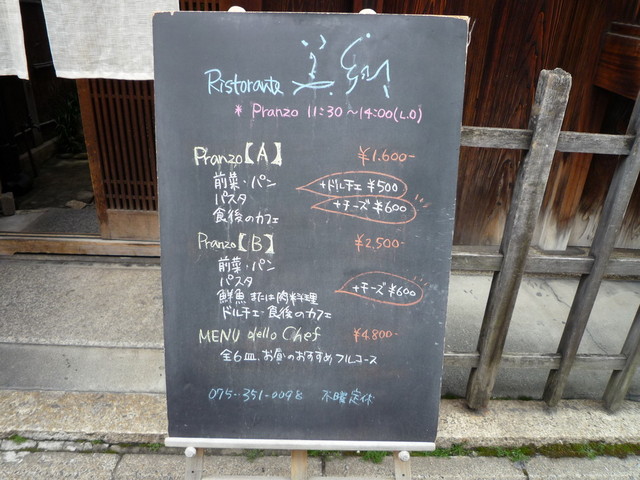 Ristorante 美郷
* Pranzo 11:30〜14:00(L.O)
Pranzo【A】 ¥1.600-
前菜・パン +ドルチェ ¥500
パスタ +チーズ ¥600
食後のカフェ
Pranzo【B】 ¥2,500-
前菜・パン
パスタ +チーズ ¥600
鮮魚 または肉料理
ドルチェ・食後のカフェ
MENU dello Chef ¥4.800-
全6皿、お昼のおすすめフルコース
075-351-0098 不曜定休